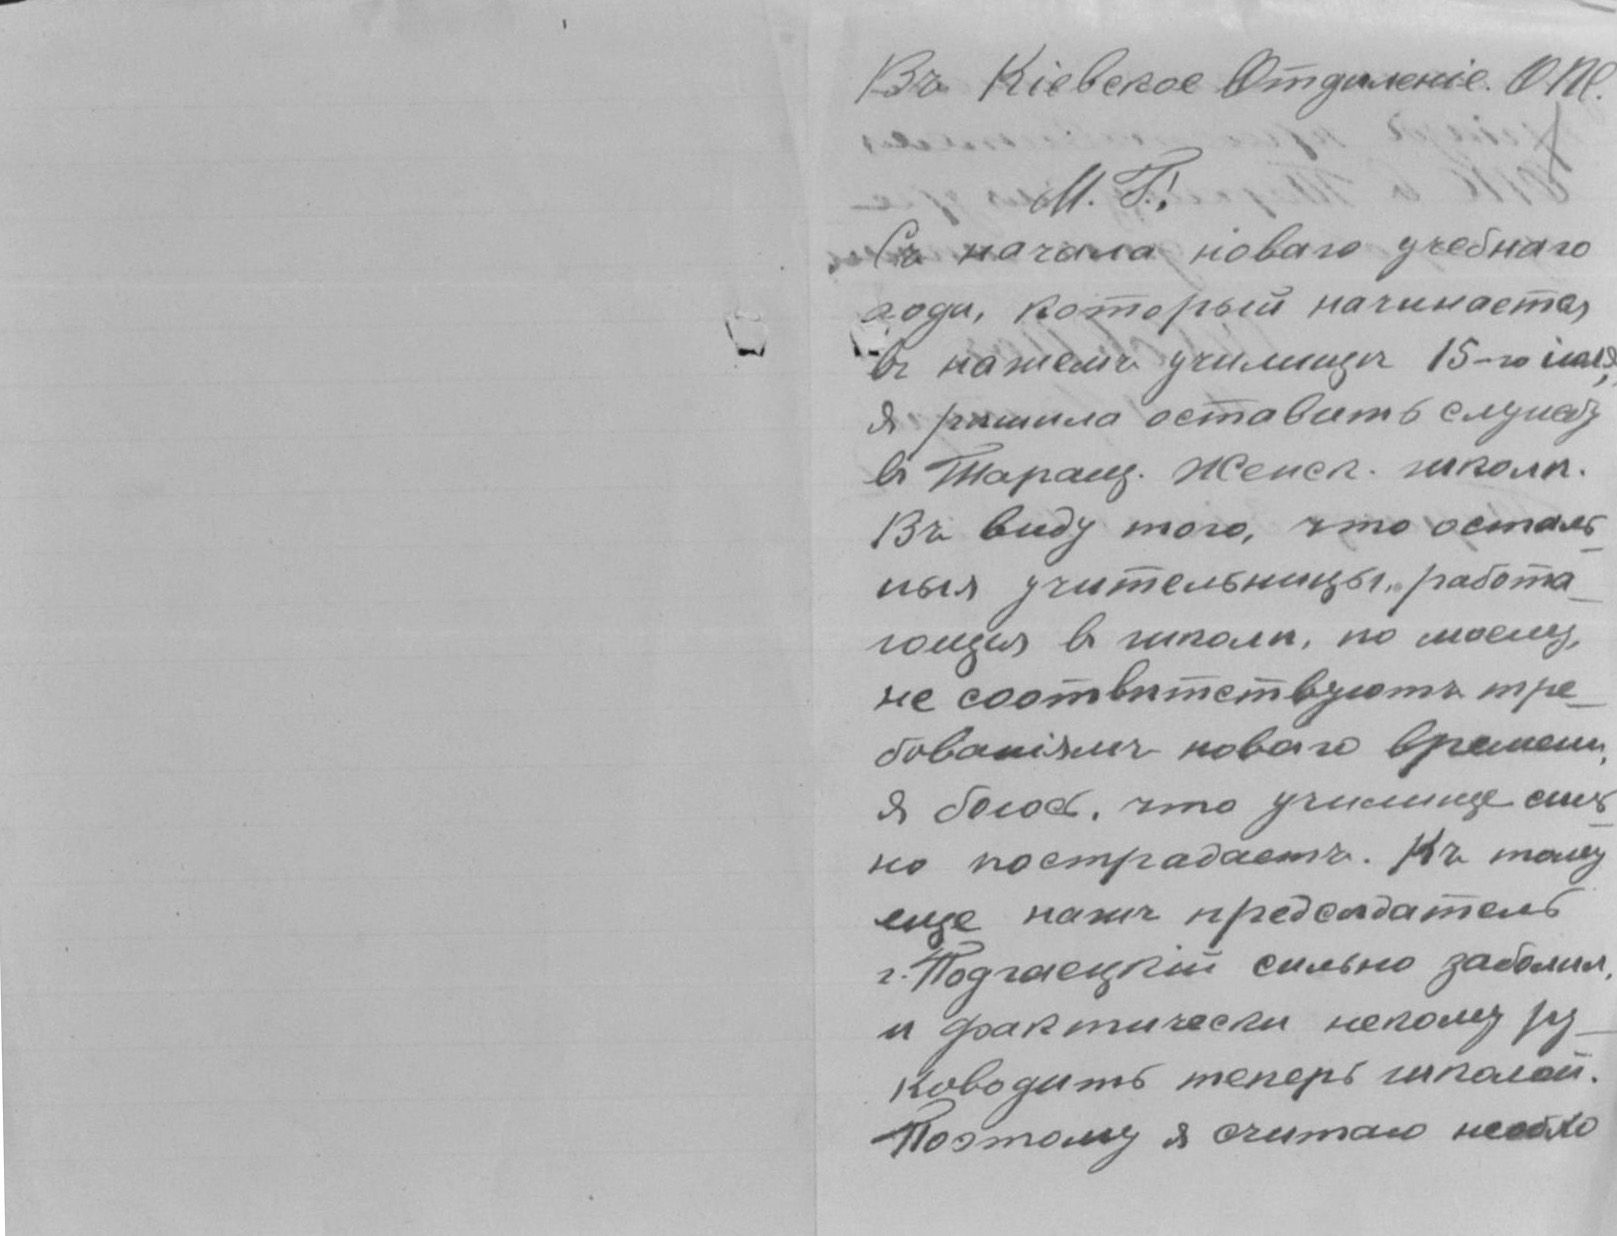 Въ Кіевское Отдѣленіе О.П.
М. Г.!
Съ начала новаго учебнаго
года, который начинается
въ нашемъ училищѣ 15-го
я рѣшила оставить службу
въ Таращ. Женск. школѣ.
Въ виду того, что осталь-
ныя учительницы, работа-
ющія въ школѣ, по моему,
не соотвѣтствуютъ тре-
бованіямъ новаго времени,
я боюсь, что училище силь-
но пострадаетъ. Къ тому
еще нашъ предсѣдатель
г. Подгаецкій сильно заболѣл,
и фактически некому ру-
ководить теперь школой.
Поэтому я считаю необхо